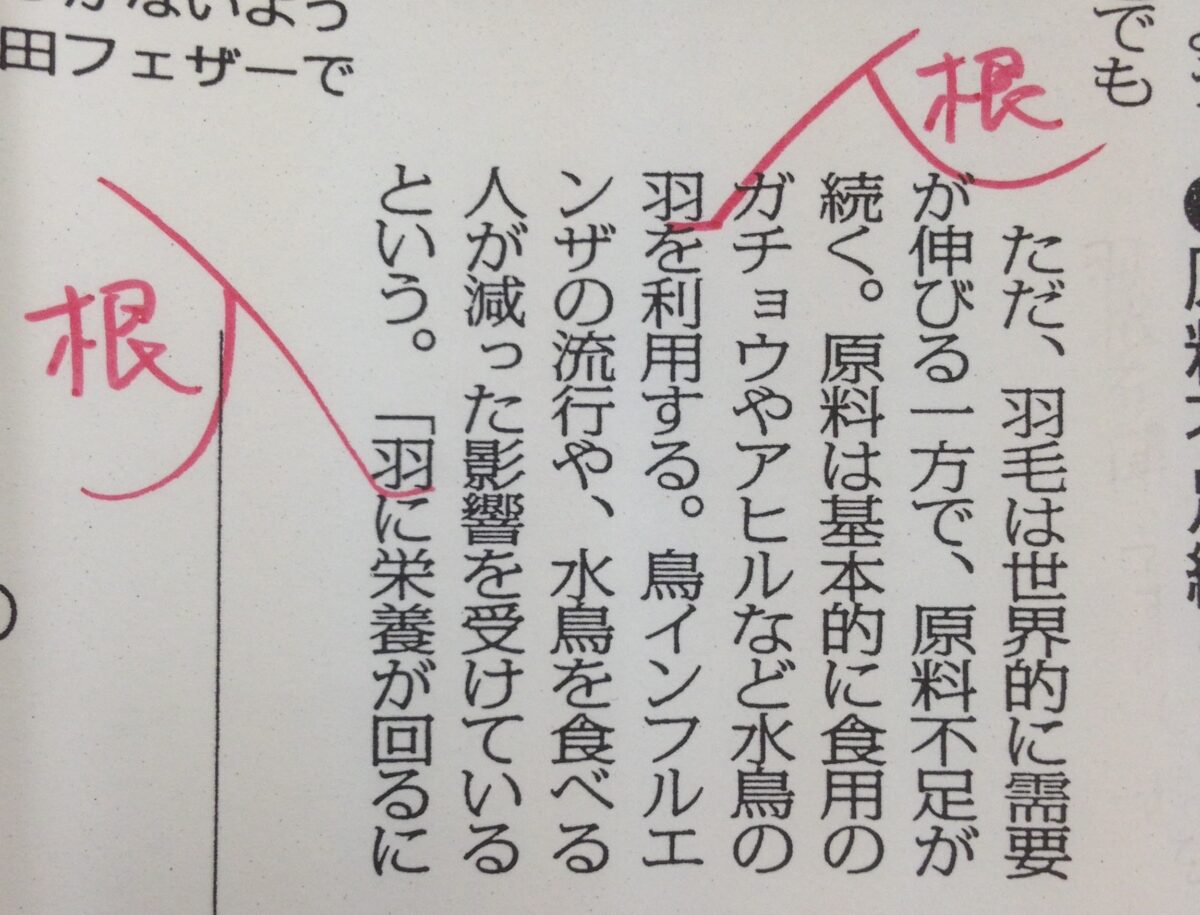 でも
ただ、羽毛は世界的に需要
が伸びる一方で、原料不足が
続く。原料は基本的に食用の
ガチョウやアヒルなど水鳥の
羽を利用する。鳥インフルエ
ンザの流行や、水鳥を食べる
人が減った影響を受けている
という。「羽に栄養が回るに
根
根
田フェザーで